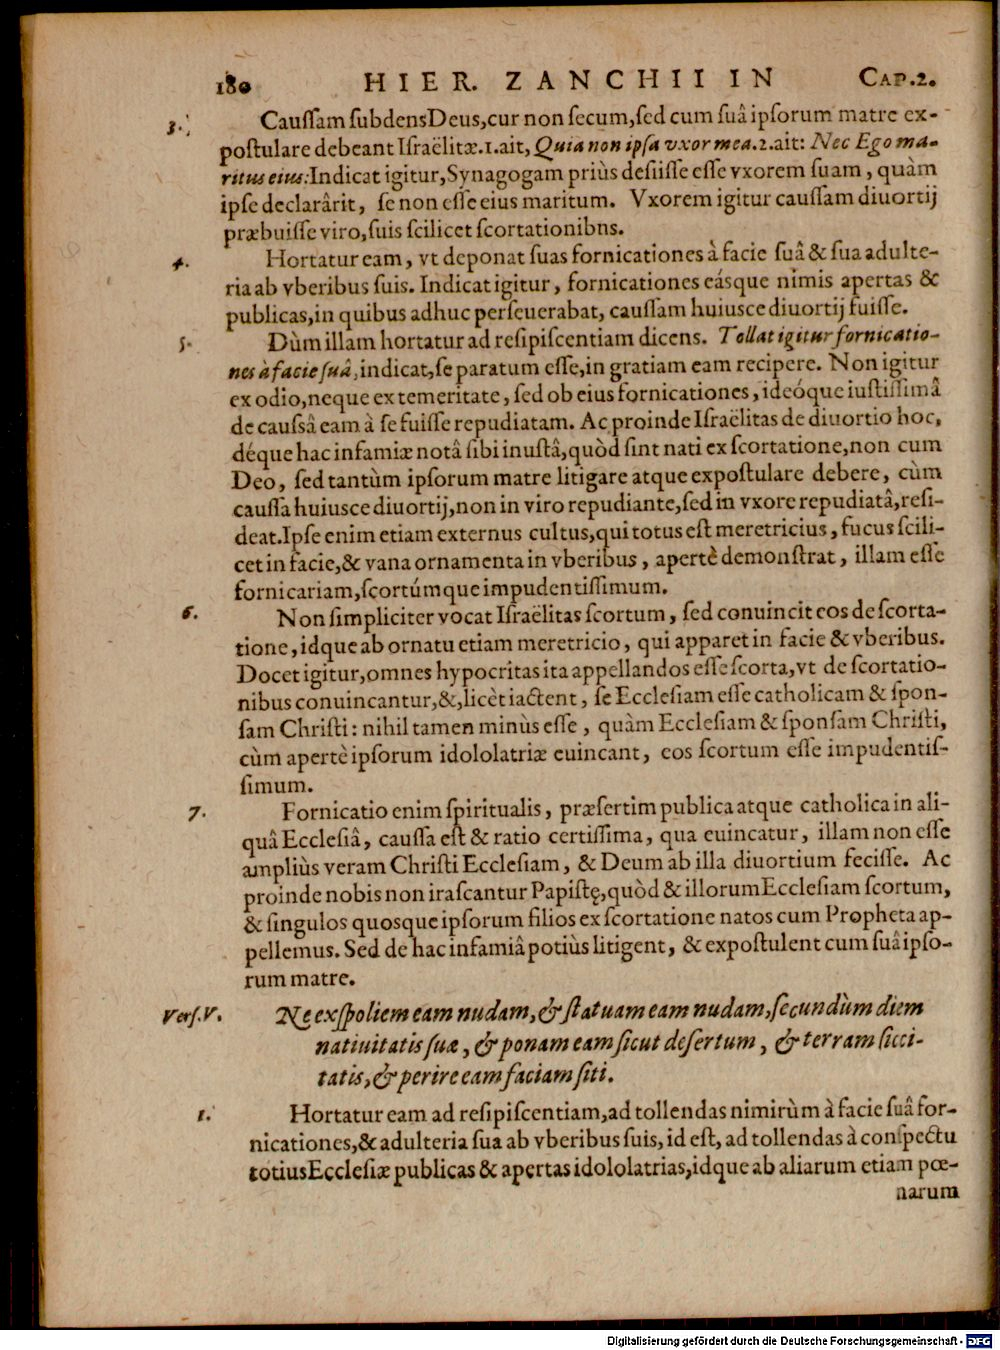 180 HIER. ZANCHII IN CAP.2.
3. Cauſſam ſubdensDeus,cur non ſecum,ſed cum ſuâ ipſorum matre ex-
poſtulare debeant Iſraëlitæ.1.ait, Quia non ipſa vxor mea.2.ait: Nec Ego ma-
ritus eius:Indicat igitur,Synagogam priùs deſiiſſe eſſe vxorem ſuam, quàm
ipſe declarârit, ſe non eſſe eius maritum. Vxorem igitur cauſſam diuortij
præbuiſſe viro,ſuis ſcilicet ſcortationibns.
4. Hortatur eam, vt deponat ſuas fornicationes à facie ſuâ & ſua adulte-
ria ab vberibus ſuis. Indicat igitur, fornicationes eásque nimis apertas &
publicas,in quibus adhuc perſeuerabat, cauſſam huiusce diuortij fuiſſe.
5. Dùm illam hortatur ad reſipiſcentiam dicens. Tollat igitur fornicatio-
nes à facie ſuâ,indicat,ſe paratum eſſe,in gratiam eam recipere. Non igitur
ex odio,neque ex temeritate, ſed ob eius fornicationes, ideóque iuſtiſſimâ
de cauſsâ eam à ſe fuiſſe repudiatam. Ac proinde Iſraëlitas de diuortio hoc,
déque hac infamiæ notâ ſibi inuſtâ,quòd ſint nati ex ſcortatione,non cum
Deo, ſed tantùm ipſorum matre litigare atque expoſtulare debere, cùm
cauſſa huiusce diuortij,non in viro repudiante,ſed in vxore repudiatâ,reſi-
deat.Ipſe enim etiam externus cultus,qui totus eſt meretricius, fucus ſcili-
cet in facie,& vana ornamenta in vberibus, apertè demonſtrat, illam eſſe
fornicariam,ſcortúmque impudentiſſimum.
6. Non ſimpliciter vocat Iſraëlitas ſcortum, ſed conuincit eos de ſcorta-
tione, idque ab ornatu etiam meretricio, qui apparet in facie & vberibus.
Docet igitur,omnes hypocritas ita appellandos eſſe ſcorta,vt de ſcortatio-
nibus conuincantur,&,licèt iactent, ſe Eccleſiam eſſe catholicam & ſpon-
ſam Chriſti: nihil tamen minùs eſſe, quàm Eccleſiam & ſponſam Chriſti,
cùm apertè ipſorum idololatriæ euincant, eos ſcortum eſſe impudentiſ-
ſimum.
7. Fornicatio enim ſpiritualis, præſertim publica atque catholica in ali-
quâ Eccleſiâ, cauſſa eſt & ratio certiſſima, qua euincatur, illam non eſſe
ampliùs veram Chriſti Eccleſiam, & Deum ab illa diuortium feciſſe. Ac
proinde nobis non iraſcantur Papiſtę,quòd & illorumEccleſiam ſcortum,
& ſingulos quosque ipſorum filios ex ſcortatione natos cum Propheta ap-
pellemus. Sed de hac infamiâ potiùs litigent, & expoſtulent cum ſuâ ipſo-
rum matre.
Verſ.V. Ne exſpoliem eam nudam, & ſtatuam eam nudam,ſecundùm diem
natiuitatis ſuæ, & ponam eam ſicut deſertum, & terram ſicci-
tatis,& perire eam faciam ſiti.
1. Hortatur eam ad reſipiſcentiam,ad tollendas nimirùm à facie ſuâ for-
nicationes,& adulteria ſua ab vberibus ſuis, id eſt, ad tollendas à conſpectu
totiusEccleſiæ publicas & apertas idololatrias,idque ab aliarum etiam pœ-
narum
Digitalisierung gefördert durch die Deutsche Forschungsgemeinschaft - DFG